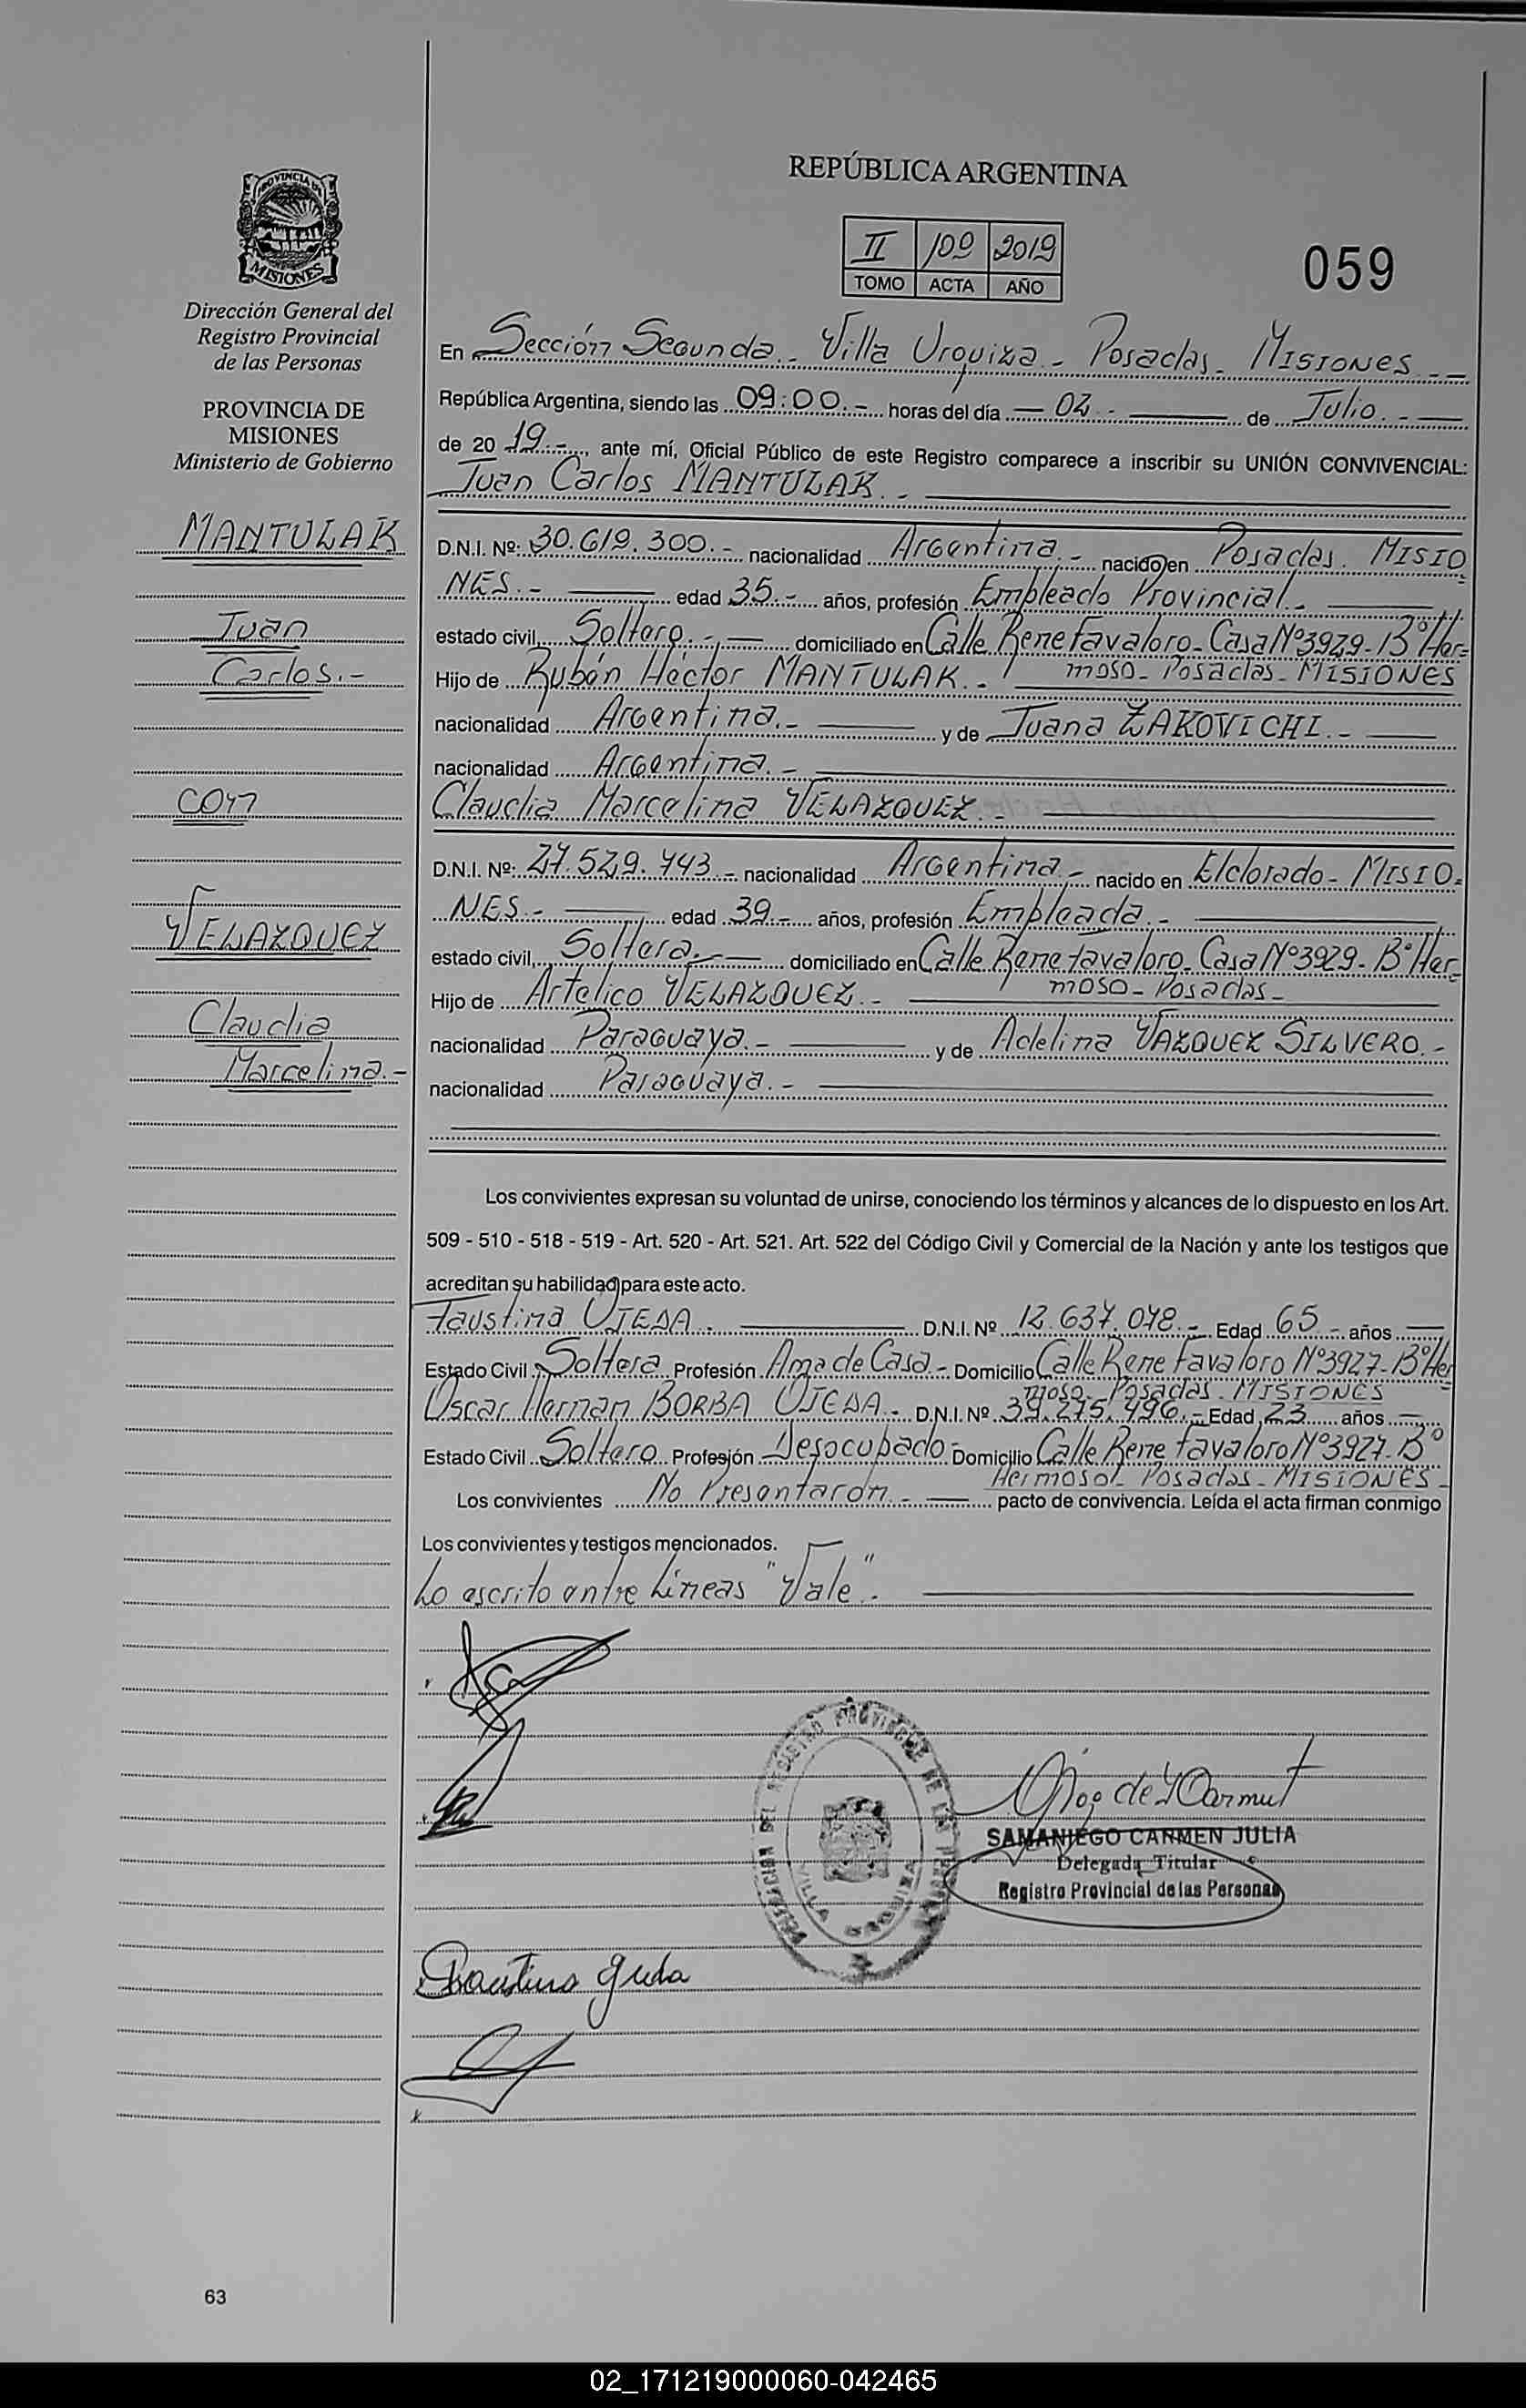 REPÚBLICA ARGENTINA
II 109 2019
TOMO ACTA AÑO
059
PROVINCIA DE
MISIONES
Dirección General del
Registro Provincial
de las Personas
PROVINCIA DE
MISIONES
Ministerio de Gobierno
MANTULAK
Juan
Carlos.-
con
VELAZQUEZ
Claudia
Marcelina.-
En Sección Segunda.- Villa Urquiza - Posadas - MISIONES.--
República Argentina, siendo las 09:00.- horas del día — 02.- — de Julio.-—
de 20 19.- , ante mí, Oficial Público de este Registro comparece a inscribir su UNIÓN CONVIVENCIAL:
Juan Carlos MANTULAK.-
D.N.I. Nº: 30.619.300.- nacionalidad Argentina.- nacido en Posadas. MISIO
NES.- — edad 35.- años, profesión Empleado Provincial.-
estado civil, Soltero.-— domiciliado en Calle Rene Favaloro - Casa Nº3929 - Bº Her=
moso - Posadas - MISIONES
Hijo de Rubén Héctor MANTULAK.-
nacionalidad Argentina.- — y de Juana ZAKOVICHI.-—
nacionalidad Argentina.-
Claudia Marcelina VELAZQUEZ.-
D.N.I. Nº: 27.529.443.- nacionalidad Argentina.- nacido en Eldorado - MISIO=
NES.- — edad 39.- años, profesión Empleada.-
estado civil, Soltera.-— domiciliado en Calle Rene favaloro - Casa Nº3929 - Bº Her=
moso - Posadas -
Hijo de Artelico VELAZQUEZ.-
nacionalidad Paraguaya.- — y de Adelina VAZQUEZ SILVERO.-
nacionalidad Paraguaya.-
Los convivientes expresan su voluntad de unirse, conociendo los términos y alcances de lo dispuesto en los Art.
509 - 510 - 518 - 519 - Art. 520 - Art. 521. Art. 522 del Código Civil y Comercial de la Nación y ante los testigos que
acreditan su habilidad para este acto.
Faustina OJEDA.- D.N.I. Nº 12.637.078.- Edad 65.- años
Estado Civil Soltera Profesión Ama de Casa.- Domicilio Calle Rene Favaloro Nº3927 - Bº Her=
moso - Posadas - MISIONES
Oscar Hernan BORBA OJEDA.- D.N.I. Nº 39.275.496.- Edad 23 años
Estado Civil Soltero Profesión Desocupado- Domicilio Calle Rene favaloro Nº3927. Bº
Hermoso - Posadas - MISIONES-
Los convivientes No Presentaron.- — pacto de convivencia. Leída el acta firman conmigo
Los convivientes y testigos mencionados.
Lo escrito entre Líneas "Vale".
SAMANIEGO CARMEN JULIA
Delegada Titular
Registro Provincial de las Personas
DELEGACION DEL REGISTRO PROVINCIAL DE LAS PERSONAS
VILLA URQUIZA
63
02_171219000060-042465